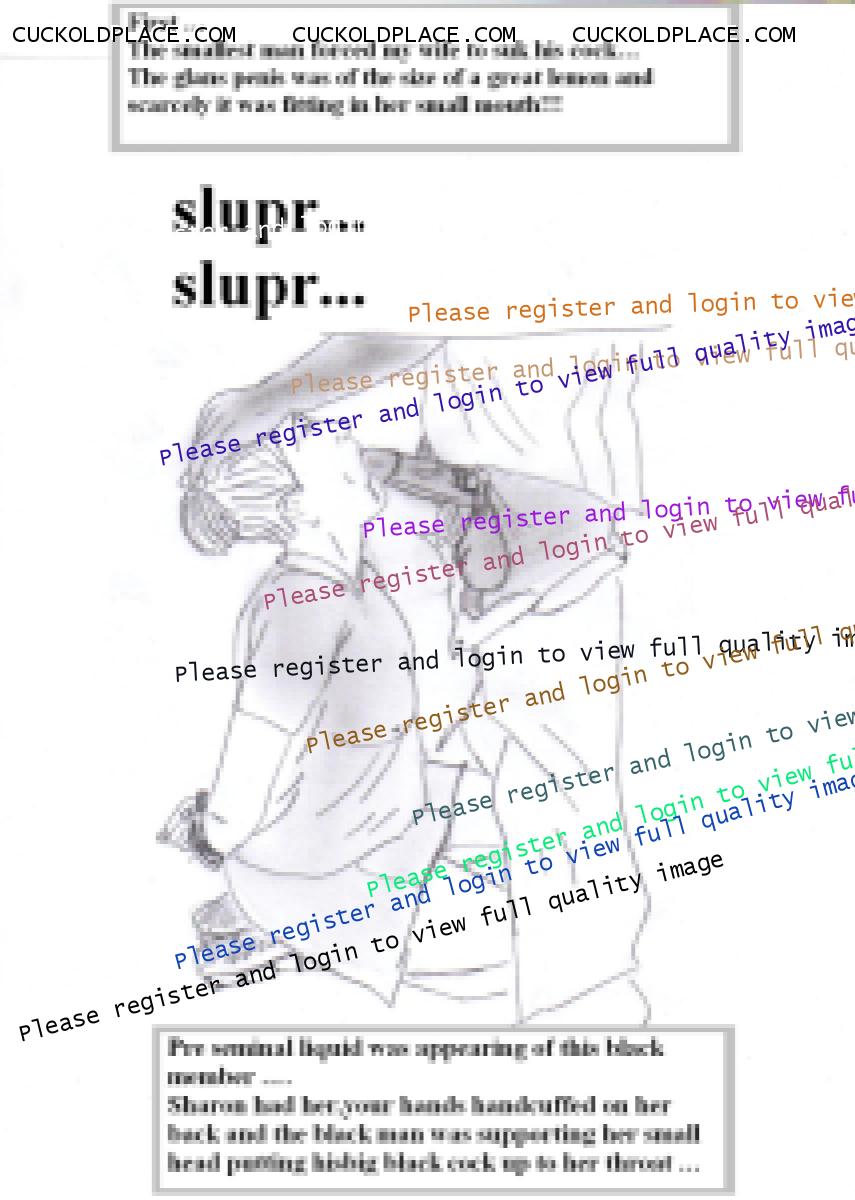 First ...
CUCKOLDPLACE.COM CUCKOLDPLACE.COM CUCKOLDPLACE.COM
The smallest man forced my wife to suk his cock...
The glans penis was of the size of a great lemon and
scarcely it was fitting in her small mouth!!!
slupr...
slupr...
Please register and login to vie
Please register and login to view full qu
Please register and login to view full quality imag
Please register and login to view fu
Please register and login to view full qual
Please register and login to view full quality im
Please register and login to view full qu
Please register and login to view
Please register and login to view ful
Please register and login to view full quality imag
Please register and login to view full quality image
Pre seminal liquid was appearing of this black
member ....
Sharon had her,your hands handcuffed on her
back and the black man was supporting her small
head putting hisbig black cock up to her throat ...